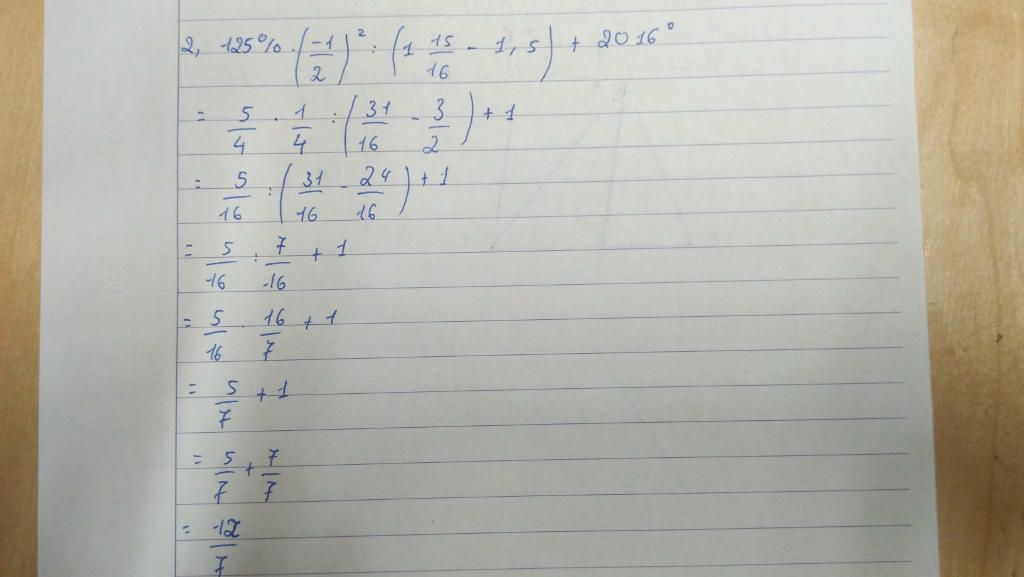 2, 125% · (-1/2)² : (1 15/16 - 1,5) + 2016⁰
= 5/4 · 1/4 : (31/16 - 3/2) + 1
= 5/16 : (31/16 - 24/16) + 1
= 5/16 : 7/16 + 1
= 5/16 · 16/7 + 1
= 5/7 + 1
= 5/7 + 7/7
= 12/7